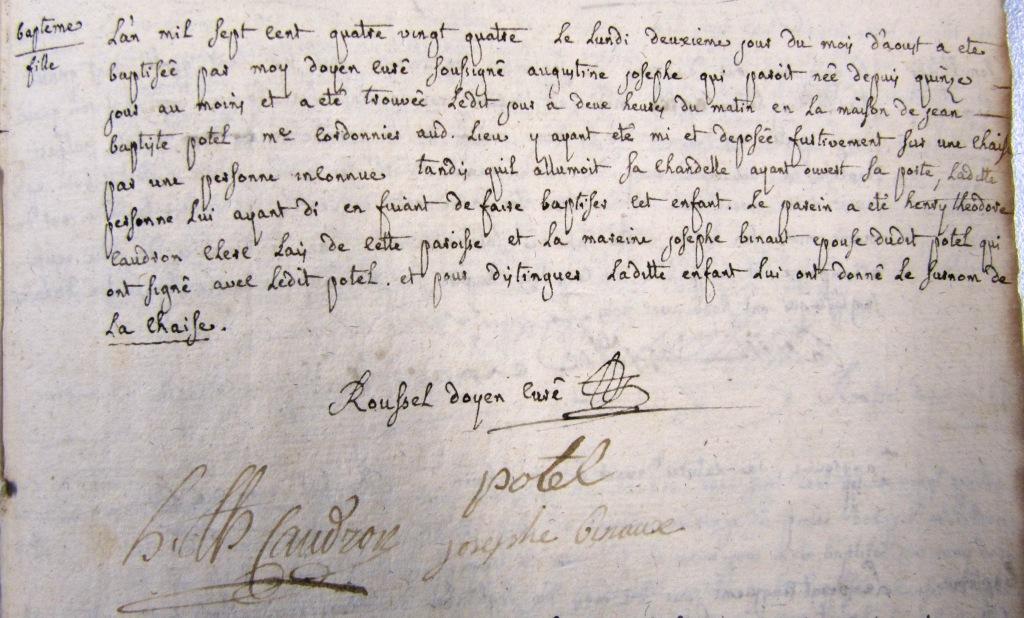 bapteme
fille
L'an mil sept cent quatre vingt quatre le lundi deuxieme jour du mois d'aoust a eté
baptisée par moy doyen curé soussigné augustine josephe qui paroit neé depuis quinze
jour au moins et a eté trouvée ledit jour a deux heures du matin en la maison de jean
baptiste potel me. cordonnier aud. lieu y ayant eté mi et deposée furtivement sur une chaise
par une personne inconnue tandis quil allumoit sa chandelle ayant ouvert sa porte, laditte
personne lui ayant di en fuiant de faire baptiser cet enfant. le parein a eté henry theodore
caudron clerc lay de cette paroisse et la mareine josephe binaut epouse dudit potel qui
ont signé avec ledit potel. et pour distinguer laditte enfant lui ont donné le surnom de
la chaise.
Roussel doyen curé
potel
h. th Caudron
josephe binaux